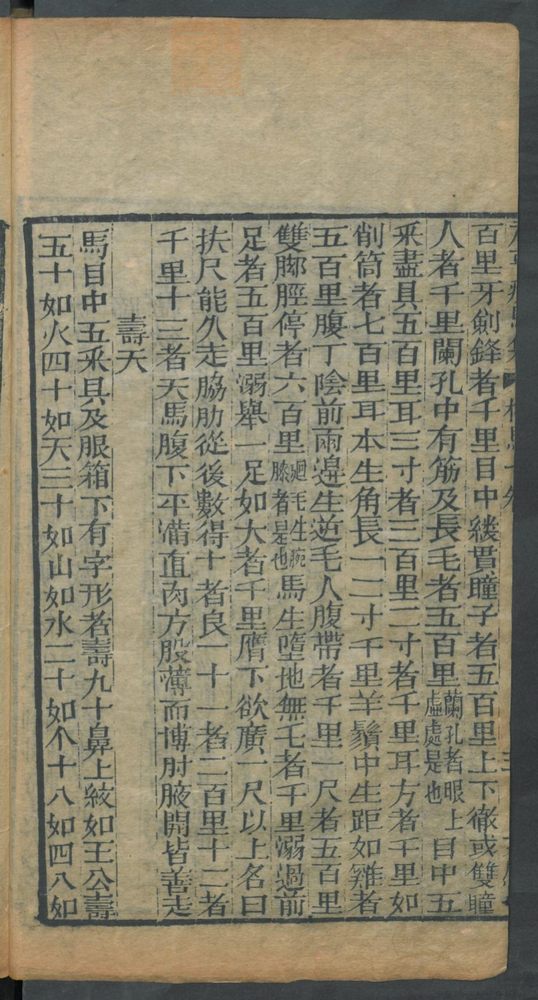 百里牙劍鋒者千里目中縷貫瞳子者五百里上下徹或雙瞳
人者千里闌孔中有筋及長毛者五百里蘭孔者眼上虛處是也目中五
釆盡具五百里耳三寸者三百里二寸者千里耳方者千里如
削筒者七百里耳本生角長一二寸千里羊鬚中生距如雞者
五百里腹丁陰前兩邊生逆毛人腹帶者千里一尺者五百里
雙脚脛停者六百里迴毛生䏶膝者是也馬生墮地無毛者千里溺過前
足者五百里溺舉一足如大者千里膺下欲廣一尺以上名曰
扶尺能久走脇肋從後數得十者良一十一者二百里十二者
千里十三者天馬腹下平滿直肉方股薄而博肘腋開皆善走
壽夭
馬目中五釆具及服箱下有字形者壽九十鼻上紋如王公壽
五十如火四十如天三十如山如水二十如个十八如四八如